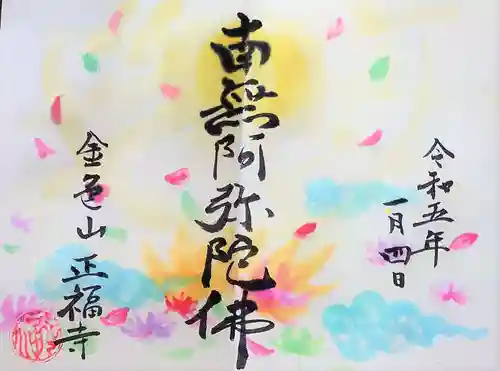 令和五年
一月四日
南無阿弥陀佛
金色山
正福寺